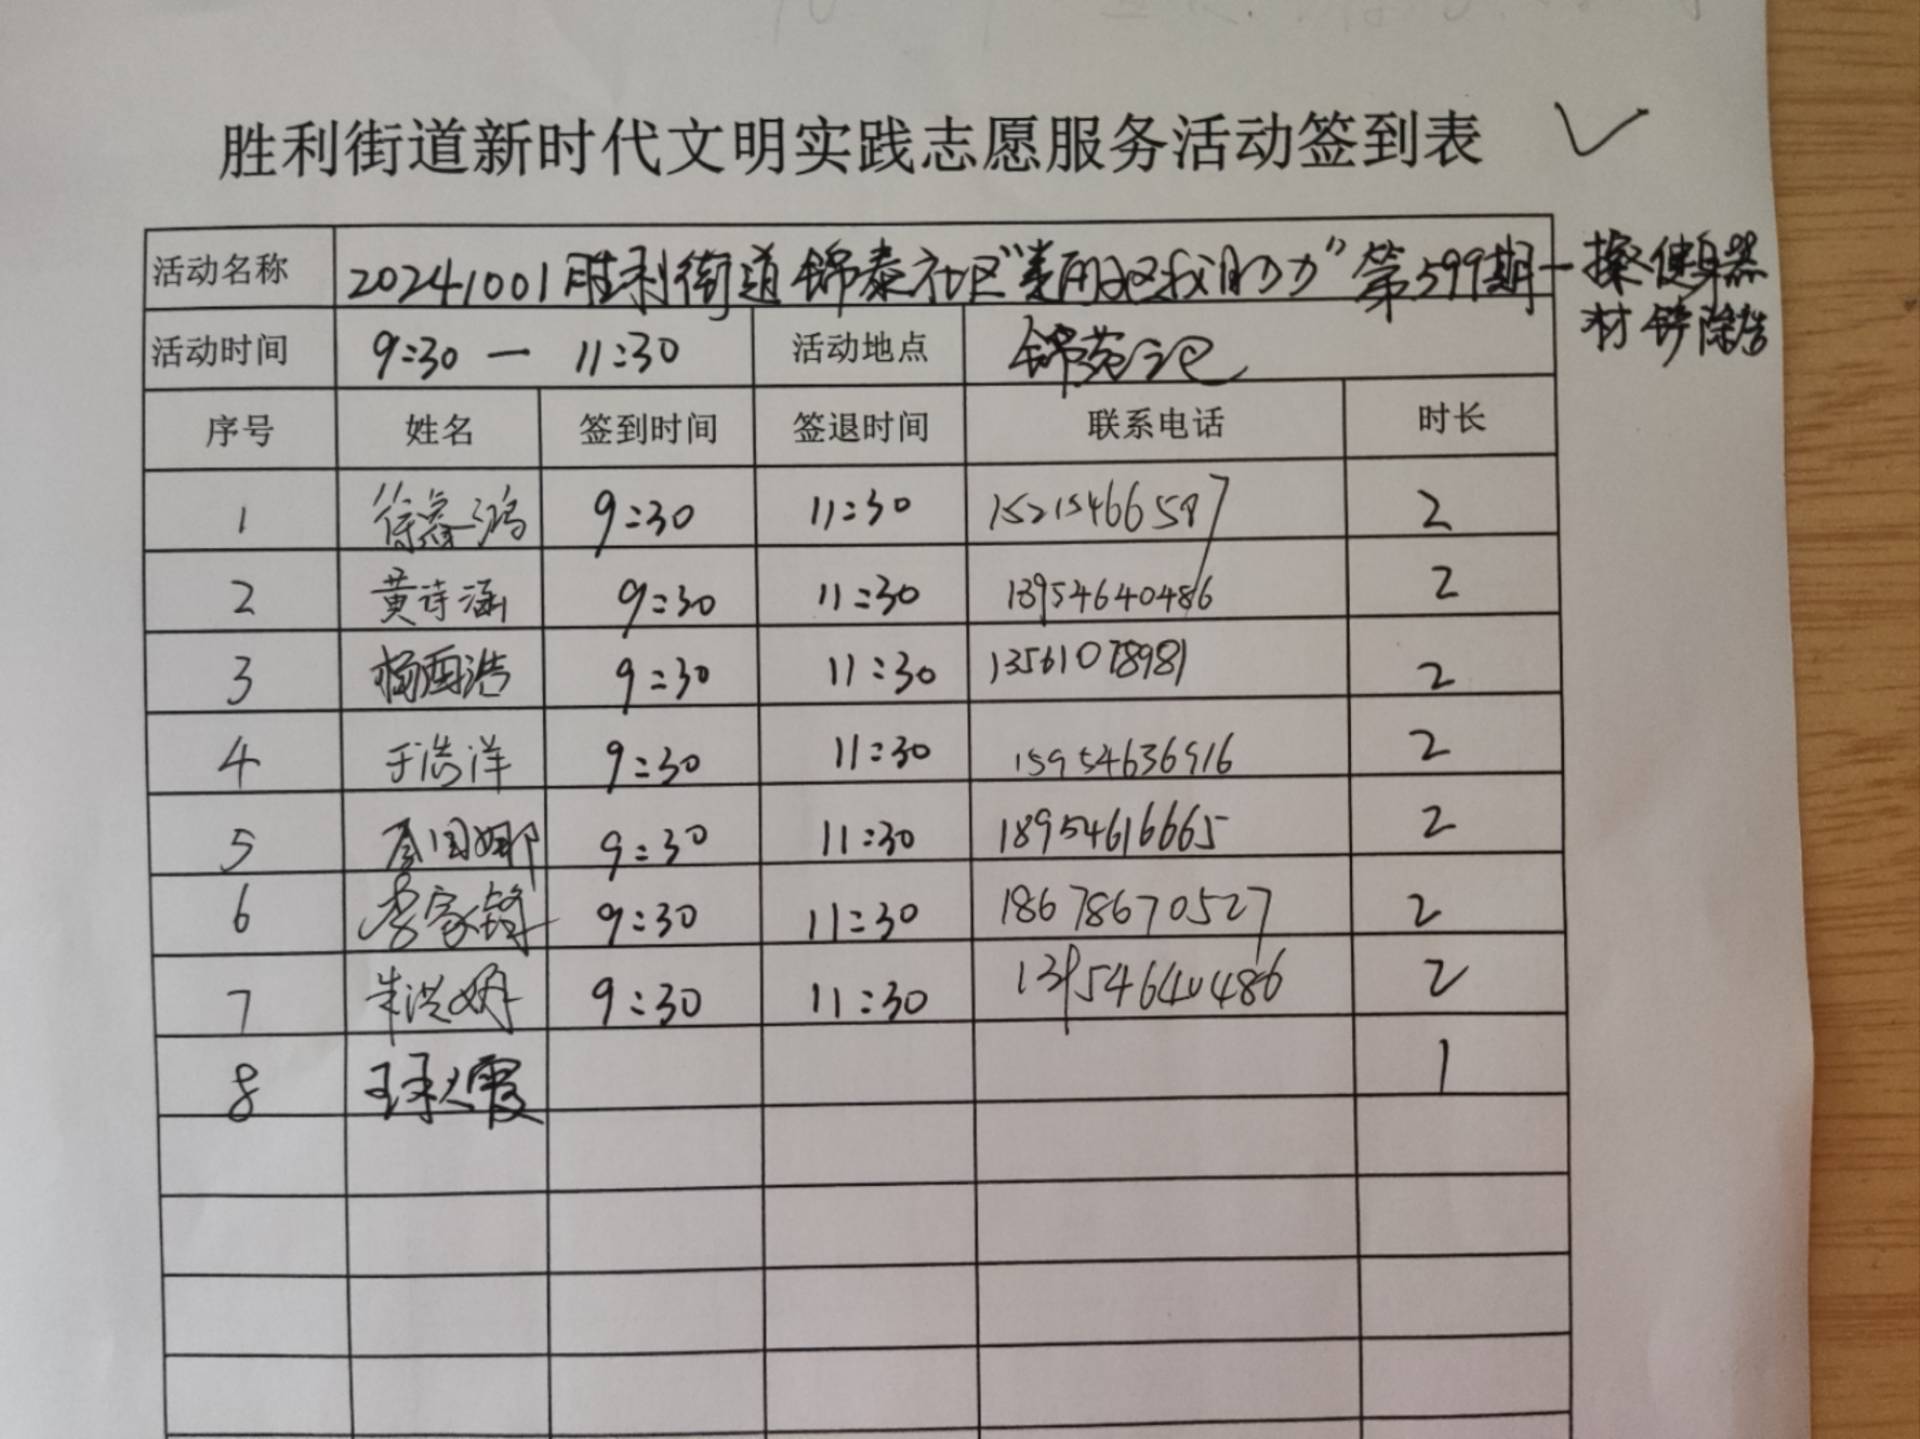 胜利街道新时代文明实践志愿服务活动签到表
活动名称 20241001胜利街道锦泰社区“美丽社区我们”第599期—擦健身器
材 铲除
活动时间 9:30 — 11:30 活动地点 锦苑
序号 姓名 签到时间 签退时间 联系电话 时长
1 徐鑫鸿 9:30 11:30 2
2 黄诗涵 9:30 11:30 13954640486 2
3 杨西浩 9:30 11:30 13561078981 2
4 于浩洋 9:30 11:30 15954636916 2
5 国娜 9:30 11:30 18954616665 2
6 李家锋 9:30 11:30 18678670527 2
7 朱洪 9:30 11:30 13954640486 2
8 王秋霞 1